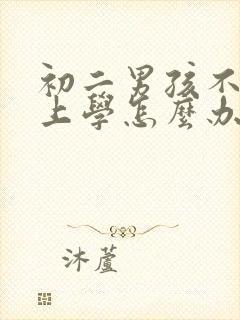 初二男孩不
上學怎麼办
沐蘆